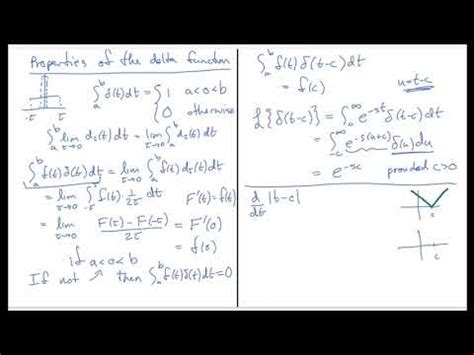 Properties of the delta function
-τ τ
∫_a^b δ(t)dt = { 1 a<0<b
0 otherwise
∫_a^b lim_{τ→0} d_τ(t)dt = lim_{τ→0} ∫_a^b d_τ(t)dt
∫_a^b f(t)δ(t)dt = lim_{τ→0} ∫_a^b f(t)d_τ(t)dt
= lim_{τ→0} ∫_{-τ}^τ f(t)·1/2τ dt F'(t)=f(t)
= lim_{τ→0} F(τ)-F(-τ)/2τ = F'(0)
= f(0)
if a<0<b
If not then ∫_a^b f(t)δ(t)dt=0
∫_a^b f(t)δ(t-c)dt
= f(c) u=t-c
ℒ{δ(t-c)} = ∫_0^∞ e^{-st} δ(t-c)dt
= ∫_{-c}^∞ e^{-s(u+c)} δ(u)du
= e^{-sc} provided c>0
d/dt |t-c|
c
c